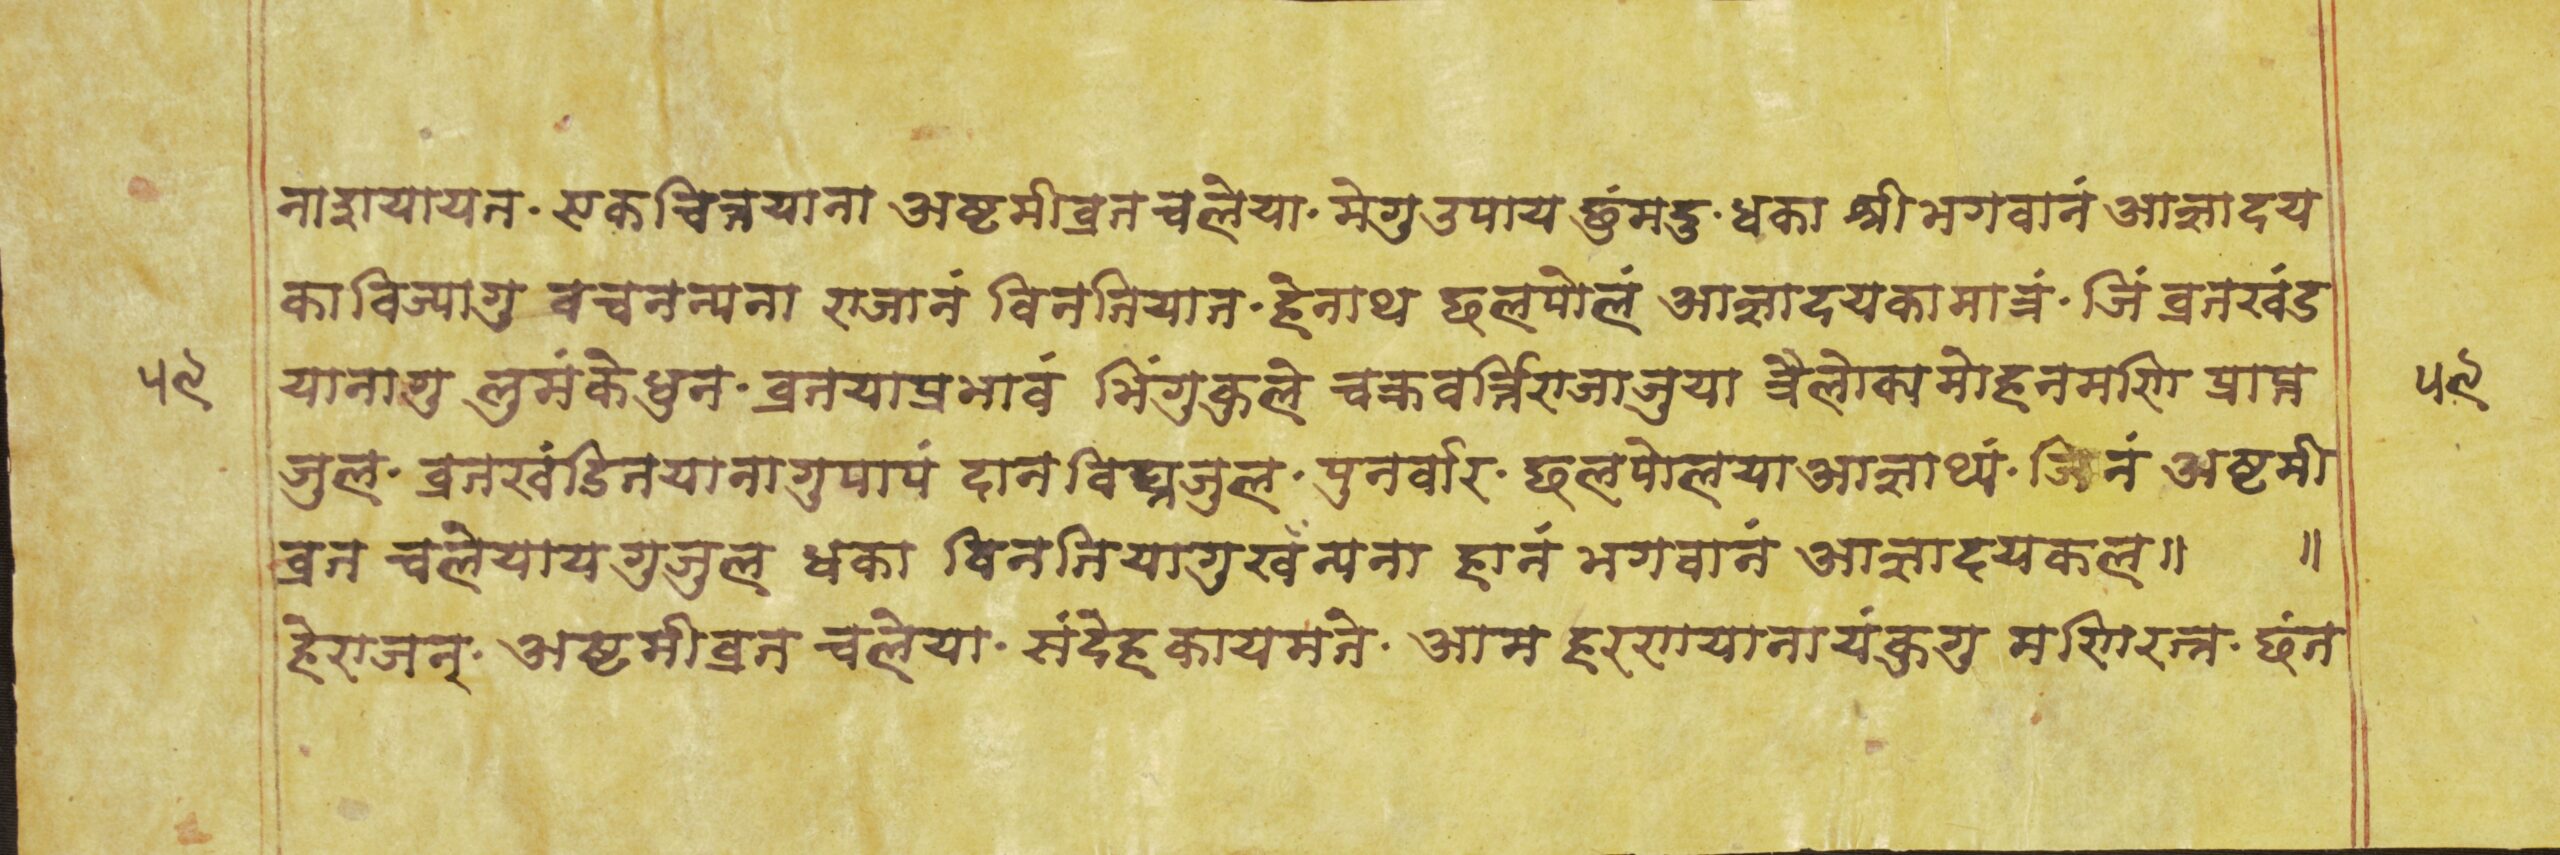 नाद्रायायत· एकचित्तयाना अष्टमीव्रत चलेया· मेगु उपाय छुं मदु· धका श्रीभगवानं आज्ञादय
काविज्यागु वचनन्यना राजानं विनतियात· हेनाथ छलपोलं आज्ञादयकामात्रं· जिं व्रतखंड
५९ यानागु लुमंकेधुन· व्रतयाप्रभावं भिंगुकुले चक्रवर्त्तिराजाजुया त्रैलोक्यमोहनमणि प्राप्त ५९
जुल· व्रतखंडितयानागुपापं दानविघ्नजुल· पुनर्वार· छलपोलयाआज्ञाथ्यं· जिनं अष्टमी
व्रत चलेयायगुजुल धका विनतियागुखंन्यना हानं भगवानं आज्ञादयकल॥ ॥
हेराजन्· अष्टमीव्रत चलेया· संदेहकायमते· आम हरणयानायंकुगु मणिरत्न· छंत